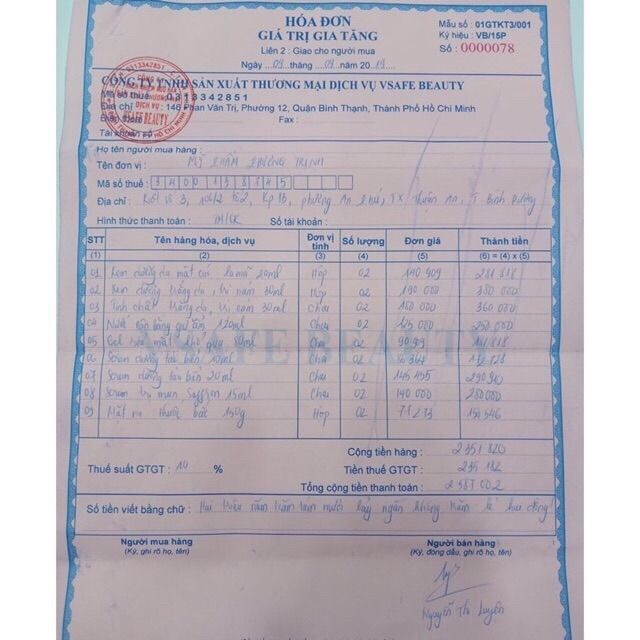 HÓA ĐƠN
GIÁ TRỊ GIA TĂNG
Liên 2 : Giao cho người mua
Ngày 09 tháng 09 năm 2019
Mẫu số : 01GTKT3/001
Ký hiệu : VB/15P
Số : 0000078
CÔNG TY TNHH SẢN XUẤT THƯƠNG MẠI DỊCH VỤ VSAFE BEAUTY
Mã số thuế : 0313342851
Địa chỉ : 146 Phan Văn Trị, Phường 12, Quận Bình Thạnh, Thành Phố Hồ Chí Minh
Điện thoại : Fax :
Tài khoản số :
Họ tên người mua hàng :
Tên đơn vị : Mỹ Phẩm Phương Trinh
Mã số thuế :
Địa chỉ : 3, tổ 2, Kp 1B, phường An Phú, TX Thuận An, T Bình Dương
Hình thức thanh toán : TM/CK Số tài khoản :
STT Tên hàng hóa, dịch vụ Đơn vị tính Số lượng Đơn giá Thành tiền
(1) (2) (3) (4) (5) (6) = (4) x (5)
01 Kem dưỡng da mặt 20ml Hộp 02 140 909 281 818
02 Kem dưỡng trắng da, trị nám 30ml Hộp 02 190 000 380 000
03 Tinh chất trắng da, trị nám 30ml Chai 02 180 000 360 000
04 Nước 120ml Chai 02 125 000 250 000
05 Gel rửa mặt Chai 02
06 Serum dưỡng 10ml Chai 02
07 Serum dưỡng tảo biển 20ml Chai 02 145 455 290 910
08 Serum trị mụn, Saffron 15ml Chai 02 140 000 280 000
09 Mặt nạ thuốc bắc 150g Hộp 02 75 273 150 546
VSAFE BEAUTY
Cộng tiền hàng : 2 351 820
Thuế suất GTGT : 10 % Tiền thuế GTGT : 235 182
Tổng cộng tiền thanh toán : 2 587 002
Số tiền viết bằng chữ : Hai triệu năm trăm tám mươi bảy ngàn không trăm lẻ hai đồng
Người mua hàng Người bán hàng
(Ký, ghi rõ họ, tên) (Ký, đóng dấu, ghi rõ họ, tên)
Nguyễn Thị Luyến